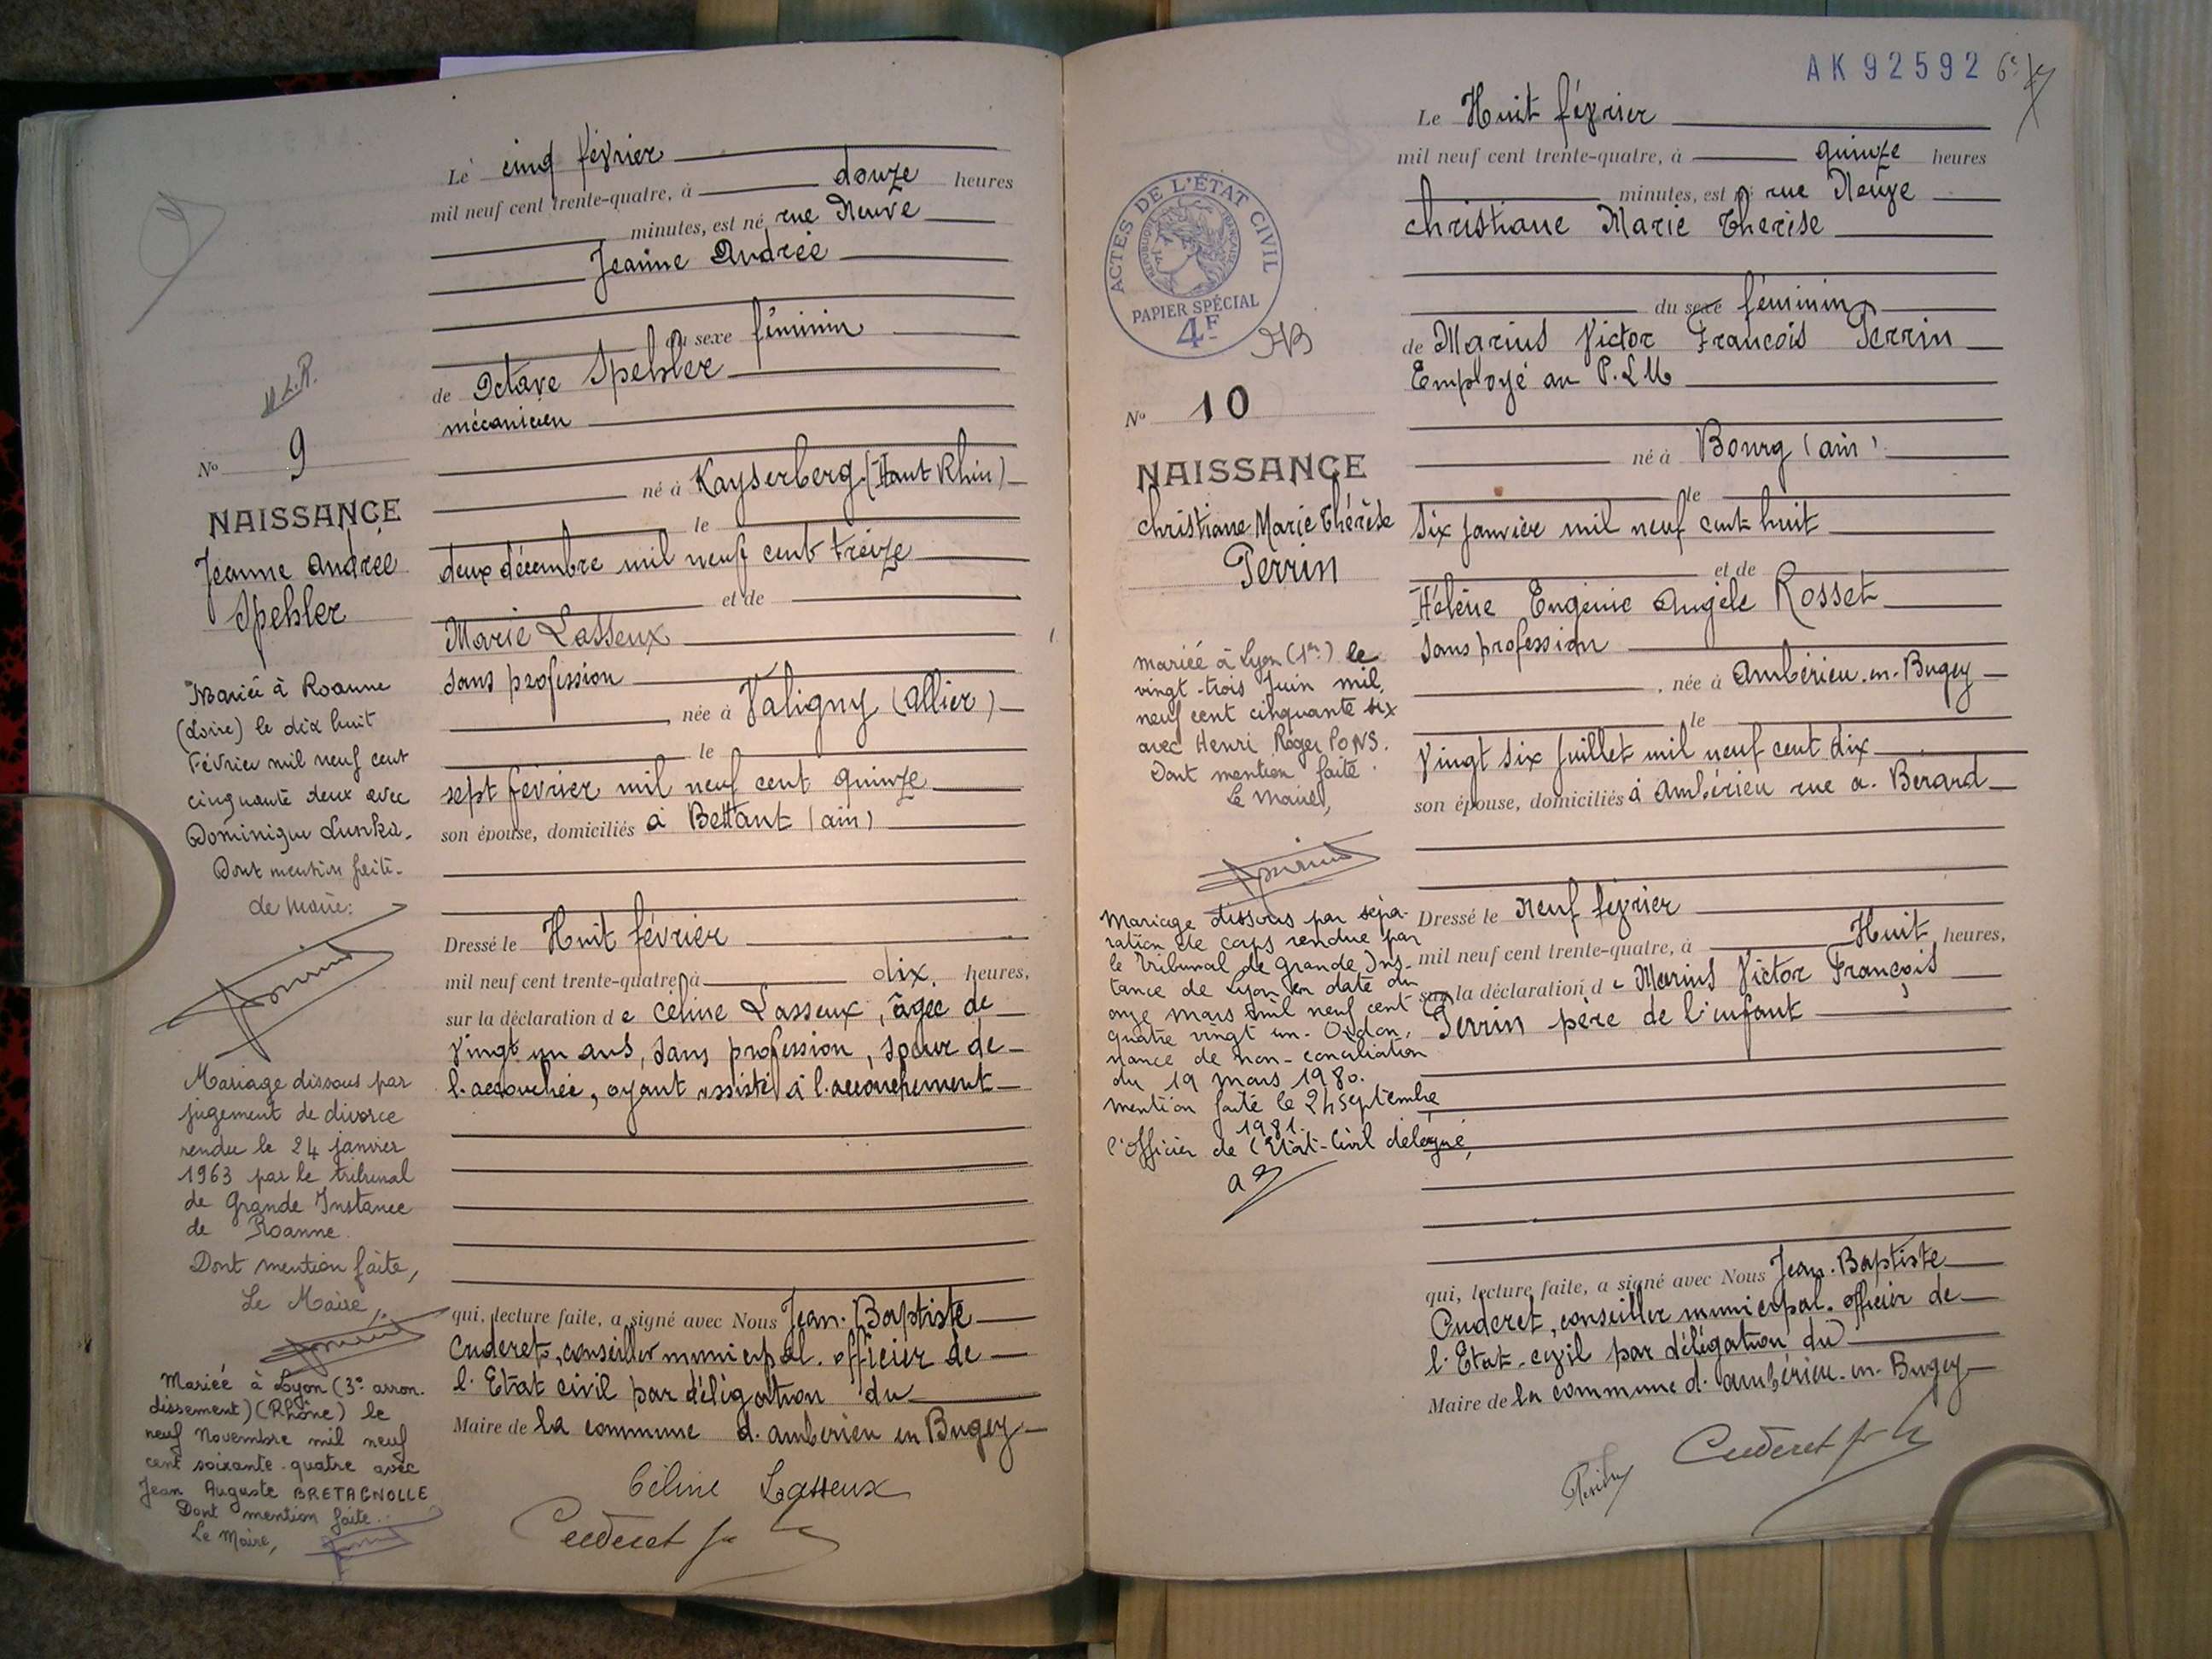 M.L.R.
N° 9
NAISSANCE
Jeanne Andrée
Spehler
Mariée à Roanne
(Loire) le dix huit
Février mil neuf cent
cinquante deux avec
Dominique Lunka.
Dont mention faite.
Le Maire:
Mariage dissous par
jugement de divorce
rendu le 24 janvier
1963 par le tribunal
de Grande Instance
de Roanne.
Dont mention faite,
Le Maire,
Mariée à Lyon (3e arron.
dissement) (Rhône) le
neuf Novembre mil neuf
cent soixante-quatre avec
Jean Auguste BRETAGNOLLE
Dont mention faite.
Le Maire,
Le cinq février
mil neuf cent trente-quatre, à douze heures
minutes, est né rue Neuve
Jeanne Andrée
du sexe féminin
de Octave Spehler
mécanicien
né à Kayserberg (Haut Rhin)
le
deux décembre mil neuf cent treize
et de
Marie Lasseux
sans profession
, née à Valigny (Allier)
le
sept février mil neuf cent quinze
son épouse, domiciliés à Bettant (ain)
Dressé le Huit février
mil neuf cent trente-quatre, à dix. heures,
sur la déclaration d e Céline Lasseux, âgée de
vingt un ans, sans profession, soeur de
l'accouchée, ayant assisté à l'accouchement
qui, lecture faite, a signé avec Nous Jean-Baptiste
Cuderet, conseiller municipal. officier de
l'Etat civil par délégation du
Maire de la commune d'ambérieu en Bugey
Céline Lasseux
Cuderet
AK 92592
ACTES DE L'ÉTAT CIVIL
RÉPUBLIQUE FRANÇAISE
PAPIER SPÉCIAL
4F
N° 10
NAISSANCE
Christiane Marie Thérèse
Perrin
mariée à Lyon (1er) le
vingt-trois Juin mil
neuf cent cinquante six
avec Henri Roger PONS.
Dont mention faite.
Le Maire,
Mariage dissous par sépa-
ration de corps rendue par
le Tribunal de Grande Ins-
tance de Lyon en date du
onze mars mil neuf cent
quatre vingt un. Ordon.
nance de non-conciliation
du 19 mars 1980.
Mention faite le 24 septembre
1981.
l'Officier de l'Etat-Civil délégué,
Le Huit février
mil neuf cent trente-quatre, à quinze heures
minutes, est né rue Neuve
Christiane Marie Thérèse
du sexe féminin
de Marius Victor François Perrin
Employé au P.L.M
né à Bourg (ain)
le
six janvier mil neuf cent huit
et de
Hélène Eugénie Angèle Rosset
sans profession
, née à Ambérieu-en-Bugey
le
vingt six juillet mil neuf cent dix
son épouse, domiciliés à Ambérieu rue a. Bérard
Dressé le Neuf février
mil neuf cent trente-quatre, à Huit heures,
sur la déclaration d e Marius Victor François
Perrin père de l'enfant
qui, lecture faite, a signé avec Nous Jean-Baptiste
Cuderet, conseiller municipal. officier de
l'Etat-civil par délégation du
Maire de la commune d'ambérieu-en-Bugey
Cuderet